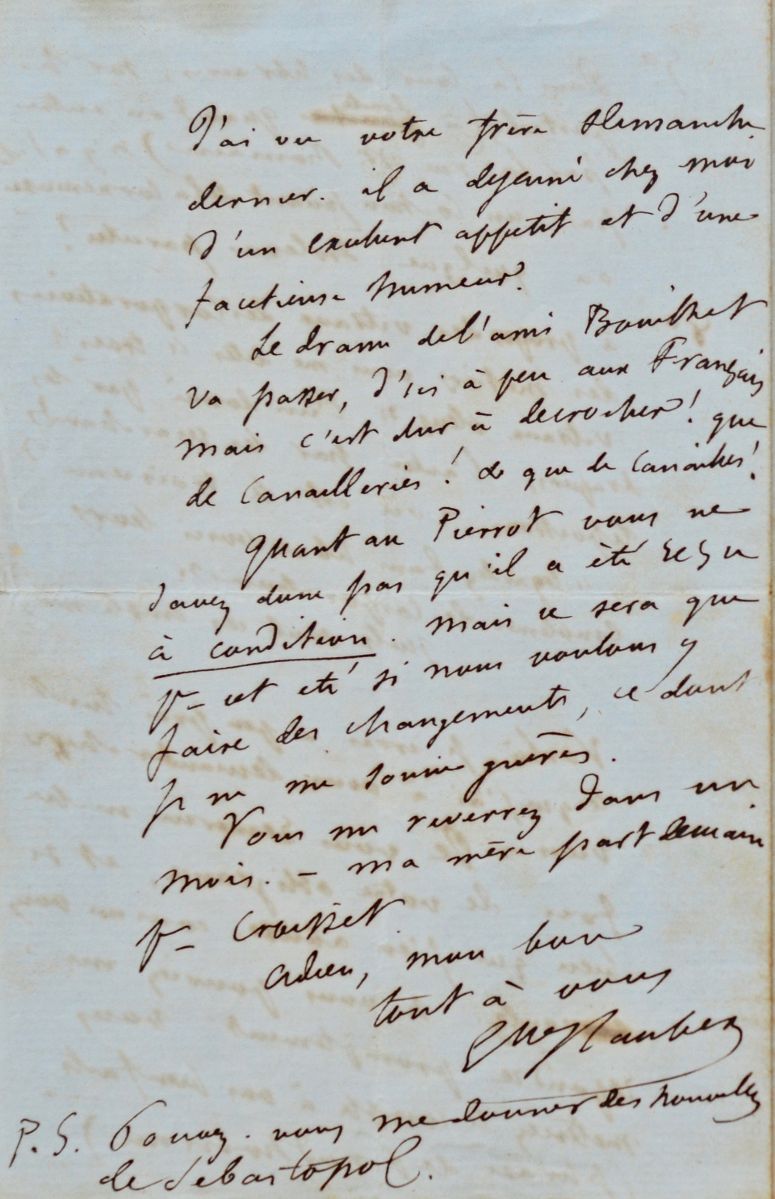 J'ai vu votre frère Dimanche
dernier. il a dejeuné chez moi
d'un excellent appetit et d'une
facetieuse humeur.
Le drame de l'ami Bouilhet
va passer, d'ici à peu aux Français
mais c'est dur à decrocher! que
de canailleries! & que de canailles!
quant au Pierrot vous ne
savez donc pas qu'il a été reçu
à condition. mais ce sera que
pr cet été si nous voulons y
faire des changements, ce dont
je ne me soucie guères.
Vous me reverrez dans un
mois. – ma mère part demain
pr Croisset.
adieu, mon bon
tout à vous
Gve Flaubert
P.S. Pouvez-vous me donner des nouvelles
de Sebastopol.